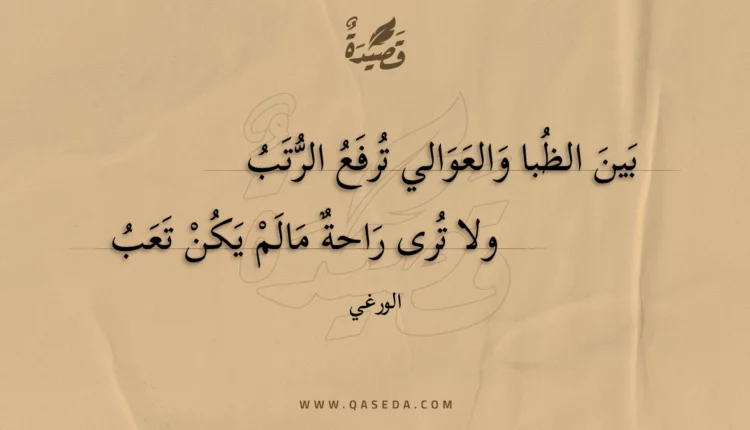 قَصِيدَةٌ
بَينَ الظُبا وَالعَوَالي تُرفَعُ الرُّتَبُ
ولا تُرى رَاحةٌ مَالَمْ يَكُنْ تَعَبُ
الورغي
WWW.QASEDA.COM